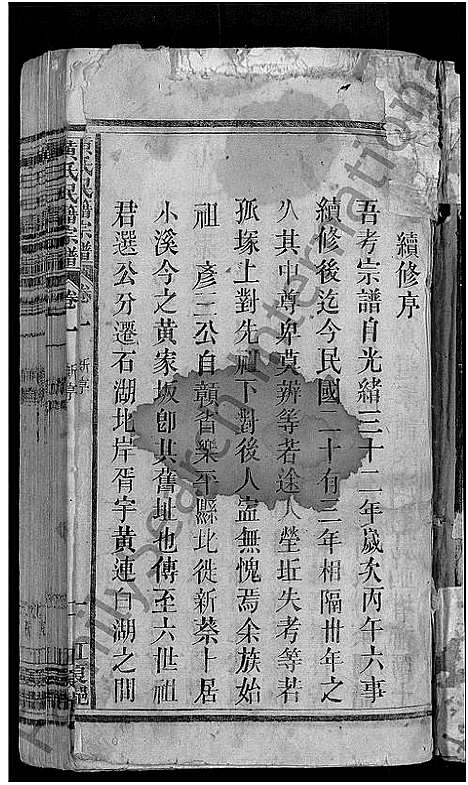 續修序
吾考宗譜自光緒三十二年歲次丙午六事
續修後迄今民國二十有三年相隔卅年之
久其中尊卑莫辨等若途人塋坵失考等若
孤塚上對先祖下對後人盍無愧焉余族始
祖 彥二公自贛省樂平縣北徙新蔡十居
小溪今之黃家坂卽其舊址也傳至六世祖
君選公分遷石湖北岸胥宇黃連白湖之間
黃氏民譜宗譜 卷一 新亭 一 江夏